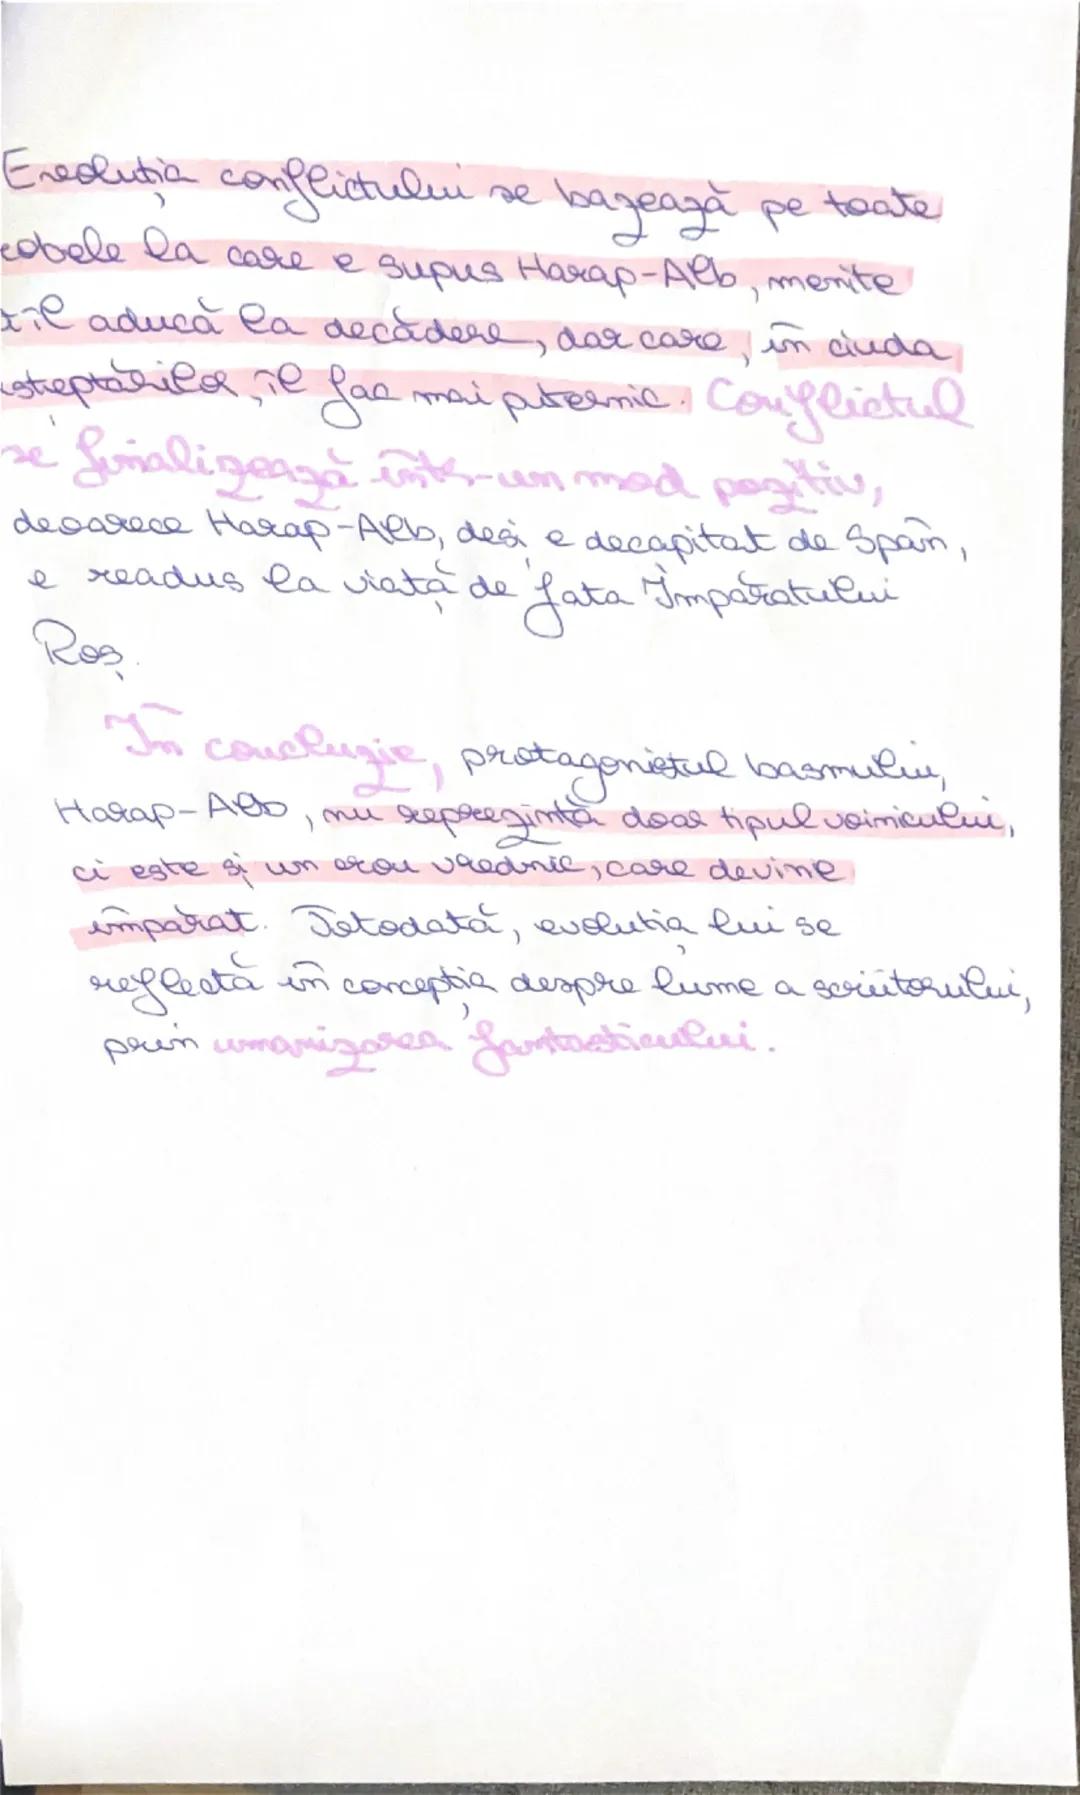 Evoluția conflictului se bazează pe toate
obele la care e supus Harap-Alb, menite
îl aducă la decădere, dar care, în ciuda
așteptărilor, îl fac mai puternic. Conflictul
se finalizează într-un mod pozitiv,
deoarece Harap-Alb, deși e decapitat de Spân,
e readus la viață de fata Împăratului
Roș.
În concluzie, protagonistul basmului,
Harap-Alb, nu reprezintă doar tipul voinicului,
ci este și un erou vrednic, care devine
împărat. Totodată, evoluția lui se
reflectă în concepția despre lume a scriitorului,
prin umanizarea fantasticului.